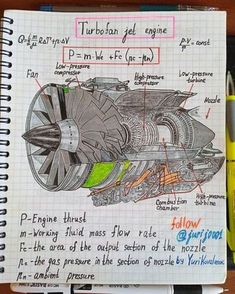 Turbofan jet engine
P = m·Wc + Fc (pc - pn)
= const
Fan
Low-pressure compressor
High-pressure compressor
Low-pressure turbine
Nozzle
Combustion chamber
High-pressure turbine
P-Engine thrust
m-Working fluid mass flow rate
Fc-the area of the output section of the nozzle
pc-the gas pressure in the section of nozzle
pn-ambient pressure
follow
by Yuri Kovalenok